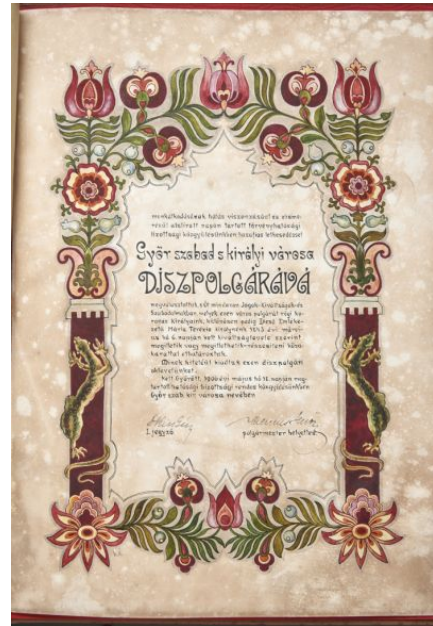 munkálkodásának hálás viszonzásául és elismeréséül
alulírott napon tartott törvényhatósági
bizottsági közgyűlésünkben hozott
Győr szabad s királyi városa
DÍSZPOLGÁRÁVÁ
megválasztottuk, sőt mindazon Jogok-Kiváltságok-és
Szabadalmakban, melyek ezen város polgárait régi ko-
ronás királyaink, különösen pedig Dicső Emléke-
zetű Mária Terézia királynénk 1743 évi márci-
us hó 6. napján kelt kiváltságlevele szerint
megilletik vagy megillethetik-részesíteni közö-
kerattal elhatároztuk.
Minek hiteléül kiadtuk ezen díszpolgári
oklevelünket.
Kelt Győrött, évi május hó 12. napján meg-
tartott hatósági bizottsági rendes közgyűlésünkben
Győr szab kir városa nevében
I. jegyző
polgármester helyettes